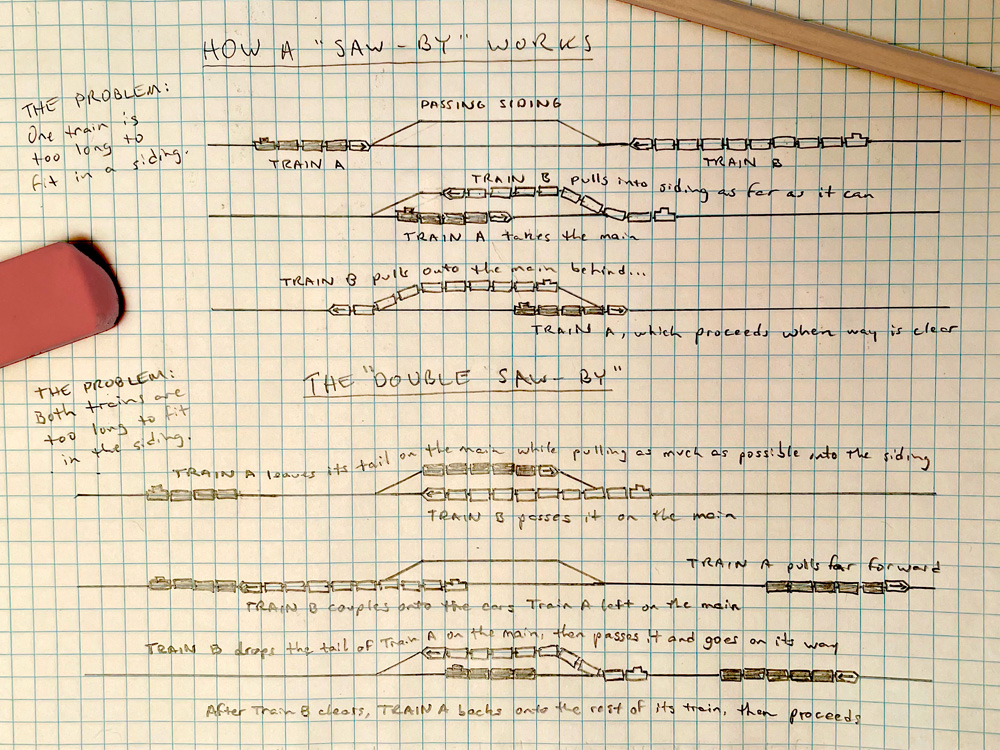 HOW A "SAW-BY" WORKS
THE PROBLEM:
One train is
too long to
fit in a siding.
PASSING SIDING
TRAIN A
TRAIN B
TRAIN B pulls into siding as far as it can
TRAIN A takes the main
TRAIN B pulls onto the main behind...
TRAIN A, which proceeds when way is clear
THE "DOUBLE SAW-BY"
THE PROBLEM:
Both trains are
too long to fit
in the siding.
TRAIN A leaves its tail on the main while pulling as much as possible onto the siding
TRAIN B passes it on the main
TRAIN A pulls far forward
TRAIN B couples onto the cars Train A left on the main
TRAIN B drops the tail of Train A on the main, then passes it and goes on its way
After Train B clears, TRAIN A backs onto the rest of its train, then proceeds